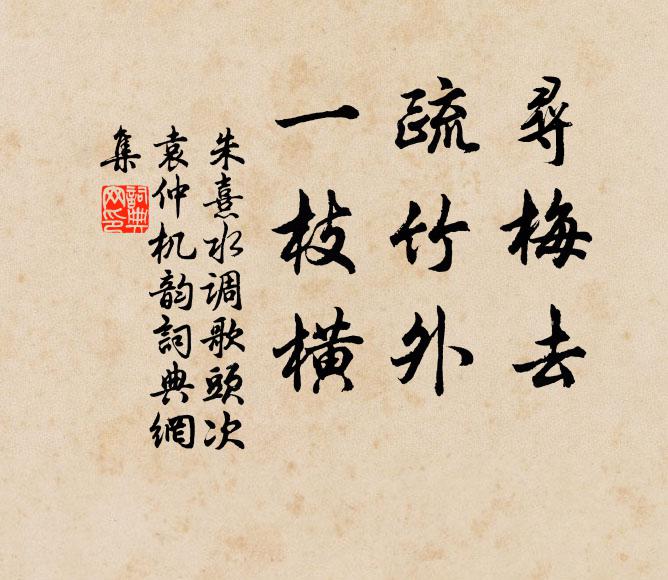 尋梅去
疏竹外
一枝橫
朱熹水调歌頭次
袁仲机韵詞典網
集
詞典
网印